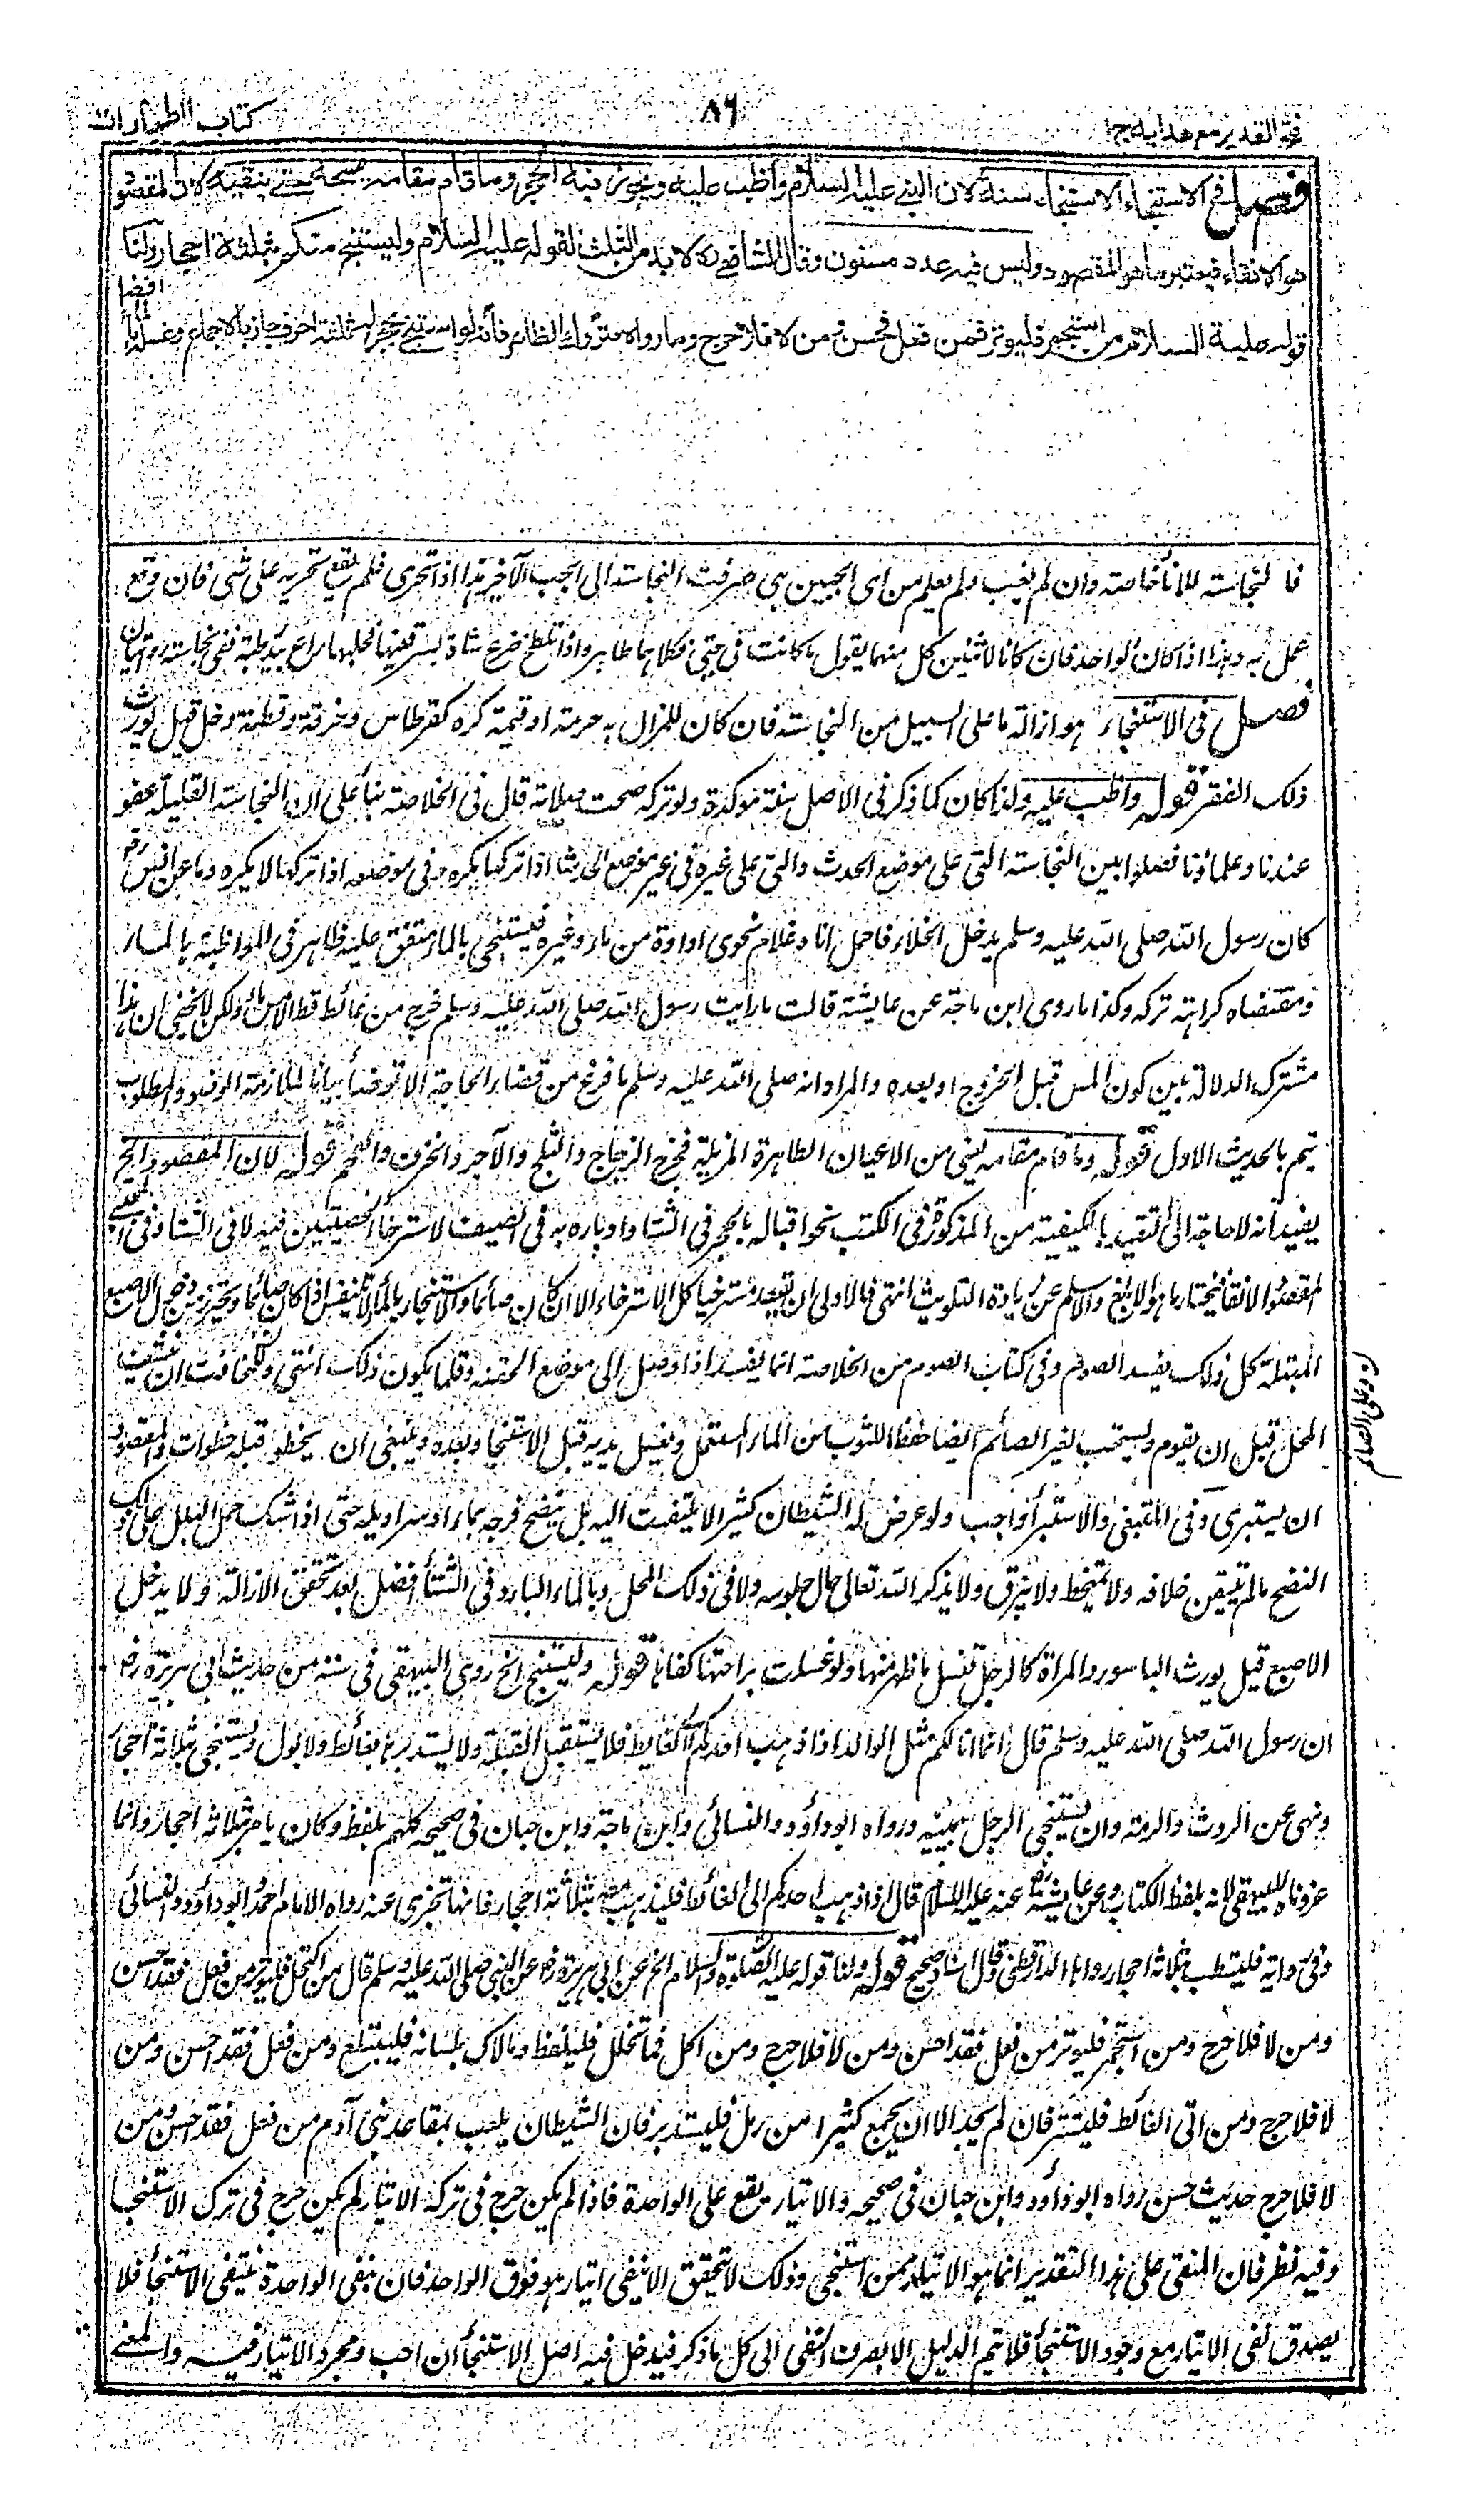 فتح القدير مع هدايه ج ا
٨٦
كتاب الطهارات
فصل في الاستنجاء الاستنجاء سنة لان النبي عليه السلام واظب عليه ويجوز فيه الحجر وما قام مقامه يمسحه حتى ينقيه لان المقصود
هو الانقاء فيعتبر ما هو المقصود وليس فيه عدد مسنون وقال الشافعي رح لا بد من الثلث لقوله عليه السلام وليستنج منكم بثلثة احجار ولنا
قوله عليه السلام من استجمر فليوتر فمن فعل فحسن ومن لا فلا حرج وما رواه متروك الظاهر فانه لو استنجى بحجر له ثلثة احرف جاز بالاجماع وغسله بالماء افضل
فالنجاسة للاناء خاصة وان لم يغب ولم يعلم من اي الجبين هي صرفت النجاسة الى الجب الآخر هذا اذا تحرى فلم يقع تحريه على شئ فان وقع
عمل به وهذا اذا كان لواحد فان كانا لاثنين كل منهما يقول ما كانت في جبي فكلاهما طاهر واذا تلطخ ضرع شاة بسرقينها فحلبها راع بيد رطبة ففي نجاسته روايتان
فصل في الاستنجاء هو ازالة ما على السبيل من النجاسة فان كان للمزال به حرمة او قيمة كره كقرطاس وخرقة وقطنة وخل قيل يورث
ذلك الفقر قوله واظب عليه ولذا كان كما ذكر في الاصل سنة مؤكدة ولو تركه صحت صلاته قال في الخلاصة بناء على ان النجاسة القليلة عفو
عندنا وعلماؤنا فصلوا بين النجاسة التي على موضع الحدث والتي على غيره في غير موضع الحدث اذا تركها يكره وفي موضعه اذا تركها لا يكره وما عن انس رض
كان رسول الله صلى الله عليه وسلم يدخل الخلاء فاحمل انا وغلام نحوي اداوة من ماء وعنزة فيستنجي بالماء متفق عليه ظاهر في المواظبة بالماء
ومقتضاه كراهة تركه وكذا ما روى ابن ماجة عن عايشة قالت ما رايت رسول الله صلى الله عليه وسلم خرج من غائط قط الا مس ماء ولكن لا يخفى ان هذا
مشترك الدلالة بين كون المس قبل الخروج او بعده والمراد انه صلى الله عليه وسلم ما فرغ من قضاء الحاجة الا توضأ بيانا لملازمة الوضوء والمطلوب
يتم بالحديث الاول قوله وما قام مقامه يعني من الاعيان الطاهرة المزيلة فخرج الزجاج والثلج والآجر والخزف والفحم قوله لان المقصود الخ
يفيد انه لا حاجة الى التقييد بالكيفية من المذكورة في الكتب نحو اقباله بالحجر في الشتاء وادباره به في الصيف لاسترخاء الخصيتين فيه لا في الشتاء وفي المجتبى
المقصود الانقاء فيختار ما هو الابلغ والاسلم عن زيادة التلويث انتهى فالاولى ان يقعد مسترخيا كل الاسترخاء الا ان كان صائما والاستنجاء بالماء لا يتنفس اذا كان صائما ويحترز من دخول الاصبع
المبتلة كل ذلك يفسد الصوم وفي كتاب الصوم من الخلاصة انما يفسد اذا وصل الى موضع الحقنة وقلما يكون ذلك انتهى وللمخافة ان ينشف
المحل قبل ان يقوم ويستحب لغير الصائم ايضا حفظا للثوب من الماء المستعمل ويغسل يديه قبل الاستنجاء وبعده وينبغي ان يخطو قبله خطوات والمقصود
ان يستبرئ وفي المبتغى والاستبراء واجب ولو عرض له الشيطان كثيرا لا يلتفت اليه بل ينضح فرجه بماء او سراويله حتى اذا شك حمل البلل على ذلك
النضح ما لم يتيقن خلافه ولا يتمخط ولا يبزق ولا يذكر الله تعالى حال جلوسه ولا في ذلك المحل وبالماء البارد في الشتاء افضل بعد تحقق الازالة ولا يدخل
الاصبع قيل يورث الباسور والمراة كالرجل تغسل ما ظهر منها ولو غسلت براحتها كفاها قوله وليستنج الخ روى البيهقي في سننه من حديث ابي هريرة رض
ان رسول الله صلى الله عليه وسلم قال انما انا لكم مثل الوالد اذا ذهب احدكم الى الغايط فلا يستقبل القبلة ولا يستدبرها بغائط ولا بول ويستنجي بثلاثة احجار
ونهى عن الروث والرمة وان يستنجي الرجل بيمينه ورواه ابوداود والنسائي وابن ماجة وابن حبان في صحيحه كلهم بلفظ وكان يامر بثلاثة احجار وانما
عزوناه للبيهقي لانه بلفظ الكتاب وعن عايشة رض عنه عليه السلام قال اذا ذهب احدكم الى الغائط فليذهب معه بثلاثة احجار فانها تجزئ عنه رواه الامام احمد وابوداود والنسائي
وفي رواية فليستطب بثلاثة احجار رواها الدارقطني وقال اسناد صحيح قوله ولنا قوله عليه الصلوة والسلام الخ عن ابي هريرة رض عن النبي صلى الله عليه وسلم قال من اكتحل فليوتر من فعل فقد احسن
ومن لا فلا حرج ومن استجمر فليوتر من فعل فقد احسن ومن لا فلا حرج ومن اكل فما تخلل فليلفظ وما لاك بلسانه فليبتلع ومن فعل فقد احسن ومن
لا فلا حرج ومن اتى الغائط فليستتر فان لم يجد الا ان يجمع كثيرا من رمل فليستدبره فان الشيطان يلعب بمقاعد بني آدم من فعل فقد احسن ومن
لا فلا حرج حديث حسن رواه ابوداود وابن حبان في صحيحه والايتار يقع على الواحدة فاذا لم يكن حرج في تركه الايتار لم يكن حرج في ترك الاستنجاء
وفيه نظر فان المنفي على هذا التقدير انما هو الايتار ممن استنجى وذلك لا يتحقق الا بنفي ايتار هو فوق الواحد فان بنفي الواحدة ينتفي الاستنجاء فلا
يصدق نفي الايتار مع وجود الاستنجاء فلا يتم الدليل الا بصرف النفي الى كل ما ذكر فيدخل فيه اصل الاستنجاء ان احب ومجرد الايتار فيه والمعنى